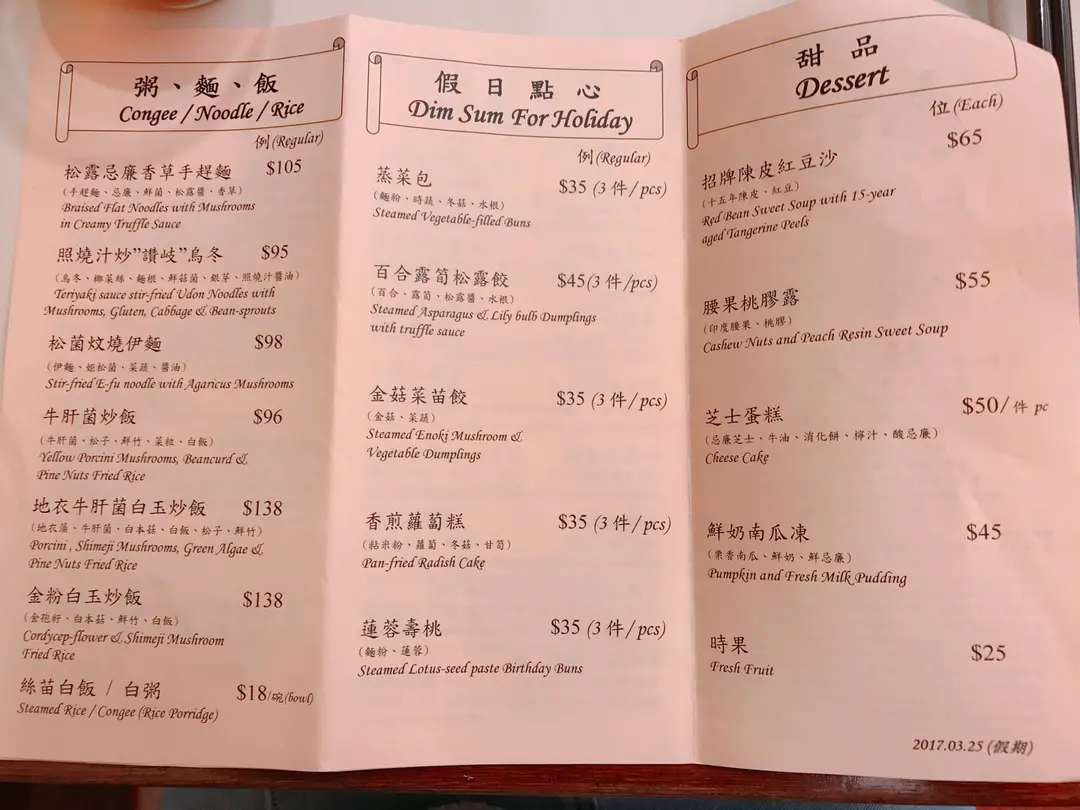 粥、麵、飯
Congee / Noodle / Rice
例 (Regular)
松露忌廉香草手趕麵 $105
（手趕麵、忌廉、鮮菌、松露醬、香草）
Braised Flat Noodles with Mushrooms
in Creamy Truffle Sauce
照燒汁炒”讚岐”烏冬 $95
（烏冬、椰菜絲、麵根、鮮菇菌、銀芽、照燒汁醬油）
Teriyaki sauce stir-fried Udon Noodles with
Mushrooms, Gluten, Cabbage & Bean-sprouts
松菌炆燒伊麵 $98
（伊麵、姫松菌、菜蔬、醬油）
Stir-fried E-fu noodle with Agaricus Mushrooms
牛肝菌炒飯 $96
（牛肝菌、松子、鮮竹、菜粒、白飯）
Yellow Porcini Mushrooms, Beancurd &
Pine Nuts Fried Rice
地衣牛肝菌白玉炒飯 $138
（地衣藻、牛肝菌、白本菇、白飯、松子、鮮竹）
Porcini , Shimeji Mushrooms, Green Algae &
Pine Nuts Fried Rice
金粉白玉炒飯 $138
（金孢籽、白本菇、鮮竹、白飯）
Cordycep-flower & Shimeji Mushroom
Fried Rice
絲苗白飯 / 白粥 $18/碗(bowl)
Steamed Rice / Congee (Rice Porridge)
假日點心
Dim Sum For Holiday
例 (Regular)
蒸菜包 $35 (3 件/pcs)
（麵粉、時蔬、冬菇、水根）
Steamed Vegetable-filled Buns
百合露筍松露餃 $45(3 件/pcs)
（百合、露筍、松露醬、水根）
Steamed Asparagus & Lily bulb Dumplings
with truffle sauce
金菇菜苗餃 $35 (3 件/pcs)
（金菇、菜蔬）
Steamed Enoki Mushroom &
Vegetable Dumplings
香煎蘿蔔糕 $35 (3 件/pcs)
（粘米粉、蘿蔔、冬菇、甘筍）
Pan-fried Radish Cake
蓮蓉壽桃 $35 (3 件/pcs)
（麵粉、蓮蓉）
Steamed Lotus-seed paste Birthday Buns
甜品
Dessert
位 (Each)
招牌陳皮紅豆沙 $65
（十五年陳皮、紅豆）
Red Bean Sweet Soup with 15-year
aged Tangerine Peels
腰果桃膠露 $55
（印度腰果、桃膠）
Cashew Nuts and Peach Resin Sweet Soup
芝士蛋糕 $50/件 pc
（忌廉芝士、牛油、消化餅、檸汁、酸忌廉）
Cheese Cake
鮮奶南瓜凍 $45
（栗香南瓜、鮮奶、鮮忌廉）
Pumpkin and Fresh Milk Pudding
時果 $25
Fresh Fruit
2017.03.25 (假期)